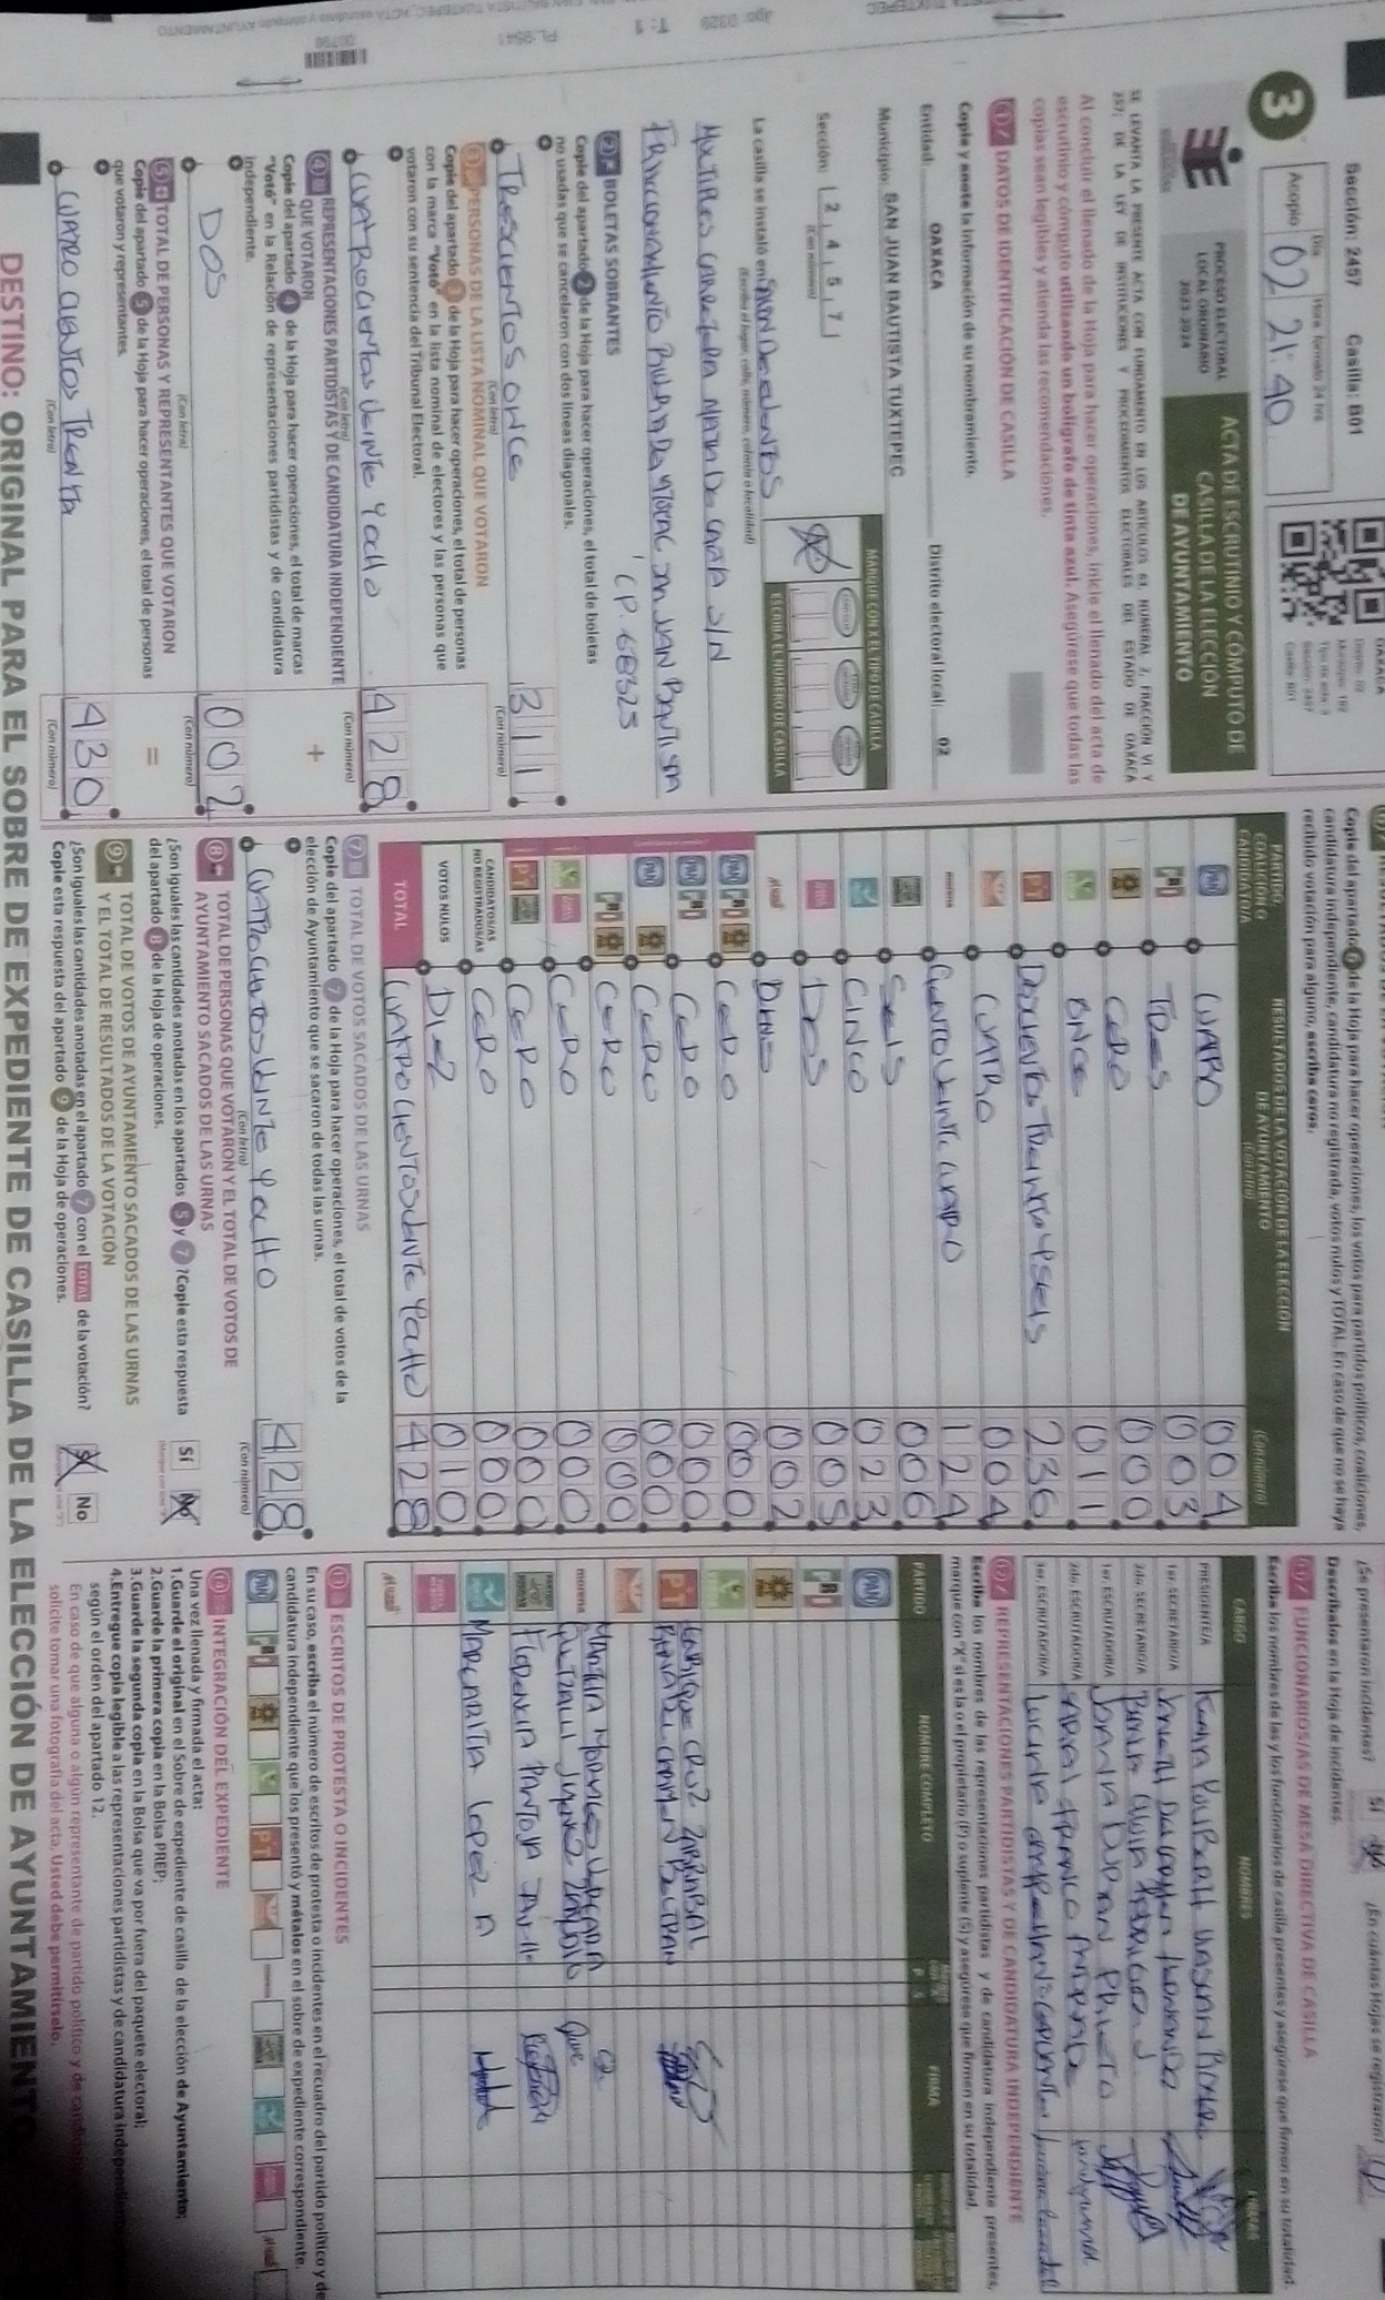 Sección: 2457 Casilla: B01
3
Día Hora formato 24 hrs
Acopio 02 21:40
PROCESO ELECTORAL
LOCAL ORDINARIO
2023-2024
ACTA DE ESCRUTINIO Y CÓMPUTO DE
CASILLA DE LA ELECCIÓN
DE AYUNTAMIENTO
SE LEVANTA LA PRESENTE ACTA CON FUNDAMENTO EN LOS ARTÍCULOS 63, NUMERAL 2, FRACCIÓN VI Y
257; DE LA LEY DE INSTITUCIONES Y PROCEDIMIENTOS ELECTORALES DEL ESTADO DE OAXACA
Al concluir el llenado de la Hoja para hacer operaciones, inicie el llenado del acta de
escrutinio y cómputo utilizando un bolígrafo de tinta azul. Asegúrese que todas las
copias sean legibles y atienda las recomendaciones.
1 DATOS DE IDENTIFICACIÓN DE CASILLA
Copie y anote la información de su nombramiento.
Entidad: OAXACA Distrito electoral local: 02
Municipio: SAN JUAN BAUTISTA TUXTEPEC
Sección: 2 4 5 7
(Con número)
MARQUE CON X EL TIPO DE CASILLA
ESCRIBA EL NÚMERO DE CASILLA
La casilla se instaló en:
(Escriba el lugar, calle, número, colonia o localidad)
CP. 68325
2 BOLETAS SOBRANTES
Copie del apartado 2 de la Hoja para hacer operaciones, el total de boletas
no usadas que se cancelaron con dos líneas diagonales.
TRESCIENTOS ONCE 311
(Con letra) (Con número)
3 PERSONAS DE LA LISTA NOMINAL QUE VOTARON
Copie del apartado 3 de la Hoja para hacer operaciones, el total de personas
con la marca "Votó" en la lista nominal de electores y las personas que
votaron con su sentencia del Tribunal Electoral.
CUATROCIENTOS VEINTE Y OCHO 428
(Con letra) (Con número)
4 REPRESENTACIONES PARTIDISTAS Y DE CANDIDATURA INDEPENDIENTE
QUE VOTARON +
Copie del apartado 4 de la Hoja para hacer operaciones, el total de marcas
"Votó" en la Relación de representaciones partidistas y de candidatura
independiente.
DOS 002
(Con letra) (Con número)
5 TOTAL DE PERSONAS Y REPRESENTANTES QUE VOTARON =
Copie del apartado 5 de la Hoja para hacer operaciones, el total de personas
que votaron y representantes.
CUATRO CIENTOS TRENTA 430
(Con letra) (Con número)
Copie del apartado 6 de la Hoja para hacer operaciones, los votos para partidos políticos, coaliciones,
candidatura independiente, candidatura no registrada, votos nulos y TOTAL. En caso de que no se haya
recibido votación para alguno, escriba ceros.
PARTIDO,
COALICIÓN O
CANDIDATO/A
RESULTADOS DE LA VOTACIÓN DE LA ELECCIÓN
DE AYUNTAMIENTO
(Con letra) (Con número)
PAN CUATRO 004
PRI TRES 003
CERO 000
ONCE 011
PT DOCIENTOS TREINTA Y SEIS 236
CUATRO 004
morena CIENTO VEINTE CUATRO 124
SEIS 006
CINCO 023
DOS 005
002
PAN PRI CERO 000
PAN PRI CERO 000
PAN CERO 000
PRI CERO 000
CERO 000
PT CERO 000
CANDIDATOS/AS
NO REGISTRADOS/AS CERO 000
VOTOS NULOS DIEZ 010
TOTAL CUATROCIENTOS VEINTE Y OCHO 428
7 TOTAL DE VOTOS SACADOS DE LAS URNAS
Copie del apartado 7 de la Hoja para hacer operaciones, el total de votos de la
elección de Ayuntamiento que se sacaron de todas las urnas.
CUATROCIENTOS VEINTE Y OCHO 428
(Con letra) (Con número)
8 TOTAL DE PERSONAS QUE VOTARON Y EL TOTAL DE VOTOS DE
AYUNTAMIENTO SACADOS DE LAS URNAS
¿Son iguales las cantidades anotadas en los apartados 5 y 7? Copie esta respuesta
del apartado 8 de la Hoja de operaciones. Sí No
9 TOTAL DE VOTOS DE AYUNTAMIENTO SACADOS DE LAS URNAS
Y EL TOTAL DE RESULTADOS DE LA VOTACIÓN
¿Son iguales las cantidades anotadas en el apartado 7 con el TOTAL de la votación?
Copie esta respuesta del apartado 9 de la Hoja de operaciones. Sí No
¿Se presentaron incidentes? Sí ¿En cuántas Hojas se registraron?
Descríbalos en la Hoja de incidentes.
FUNCIONARIOS/AS DE MESA DIRECTIVA DE CASILLA
Escriba los nombres de las y los funcionarios de casilla presentes y asegúrese que firmen en su totalidad.
CARGO NOMBRES FIRMAS
PRESIDENTE/A
1er. SECRETARIO/A
2do. SECRETARIO/A
1er. ESCRUTADOR/A
2do. ESCRUTADOR/A
3er. ESCRUTADOR/A
12 REPRESENTACIONES PARTIDISTAS Y DE CANDIDATURA INDEPENDIENTE
Escriba los nombres de las representaciones partidistas y de candidatura independiente presentes,
marque con "X" si es la o el propietario (P) o suplente (S) y asegúrese que firmen en su totalidad.
PARTIDO NOMBRE COMPLETO P S FIRMA
PAN
PRI
PT ENRIQUE CRUZ
CARMEN BELTRAN
morena
FLORENCIA PANTOJA
MARGARITA LOPEZ
13 ESCRITOS DE PROTESTA O INCIDENTES
En su caso, escriba el número de escritos de protesta o incidentes en el recuadro del partido político y de
candidatura independiente que los presentó y métalos en el sobre de expediente correspondiente.
PAN PRI PT morena
INTEGRACIÓN DEL EXPEDIENTE
Una vez llenada y firmada el acta:
1. Guarde el original en el Sobre de expediente de casilla de la elección de Ayuntamiento;
2. Guarde la primera copia en la Bolsa PREP;
3. Guarde la segunda copia en la Bolsa que va por fuera del paquete electoral;
4. Entregue copia legible a las representaciones partidistas y de candidatura
según el orden del apartado 12.
En caso de que alguna o algún representante de partido político y de
solicite tomar una fotografía del acta. Usted debe permitírselo.
DESTINO: ORIGINAL PARA EL SOBRE DE EXPEDIENTE DE CASILLA DE LA ELECCIÓN DE AYUNTAMIENTO